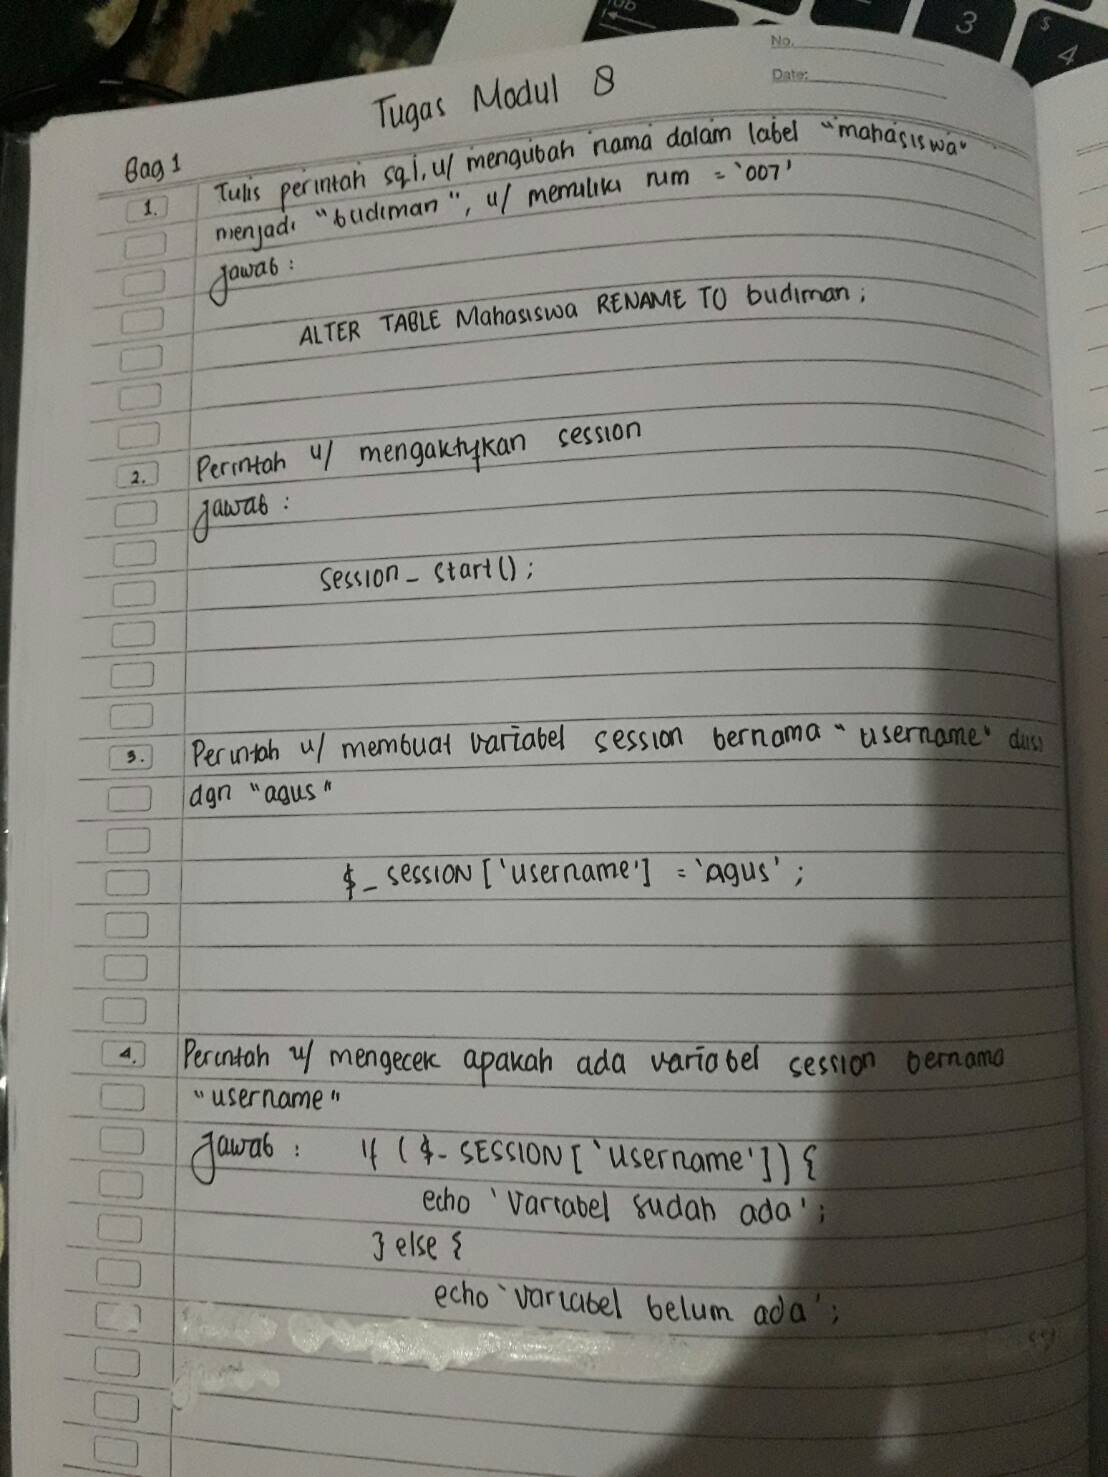 No.
Date:
Tugas Modul 8
Bag 1
1. Tulis perintah sql, u/ mengubah nama dalam label "mahasiswa"
menjadi "budiman", u/ memiliki nim = '007'
jawab :
ALTER TABLE Mahasiswa RENAME TO budiman ;
2. Perintah u/ mengaktifkan session
jawab :
Session_start() ;
3. Perintah u/ membuat variabel session bernama "username" diisi
dgn "agus"
$_SESSION ['username'] = 'agus' ;
4. Perintah u/ mengecek apakah ada variabel session bernama
"username"
Jawab : if ($_SESSION ['username']) {
echo 'Variabel sudah ada' ;
} else {
echo 'variabel belum ada' ;
3
$
4